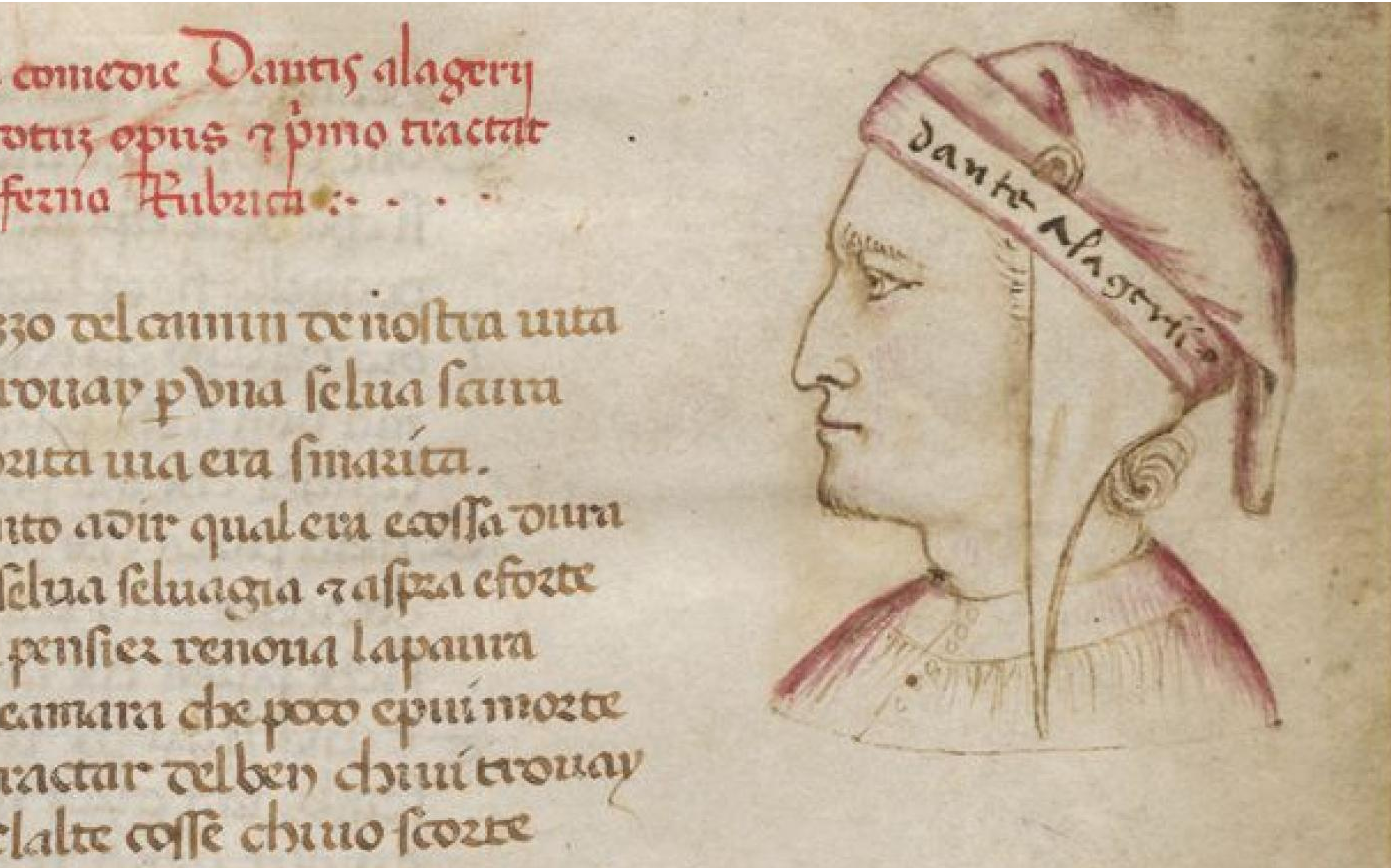 comedie Dantis alagerij
opus ⁊ p͛mo tractat
ferno Rubrica
zzo del camin de nostra uita
rouay ꝑ vna selua scura
rita uia era smarita.
nto a dir qual era e cossa dura
selua seluagia ⁊ aspra e forte
pensier renoua la paura
e amara che poco e piu morte
tractar del ben ch iui trouay
elalte cosse ch iuo scorte
dante alagerii